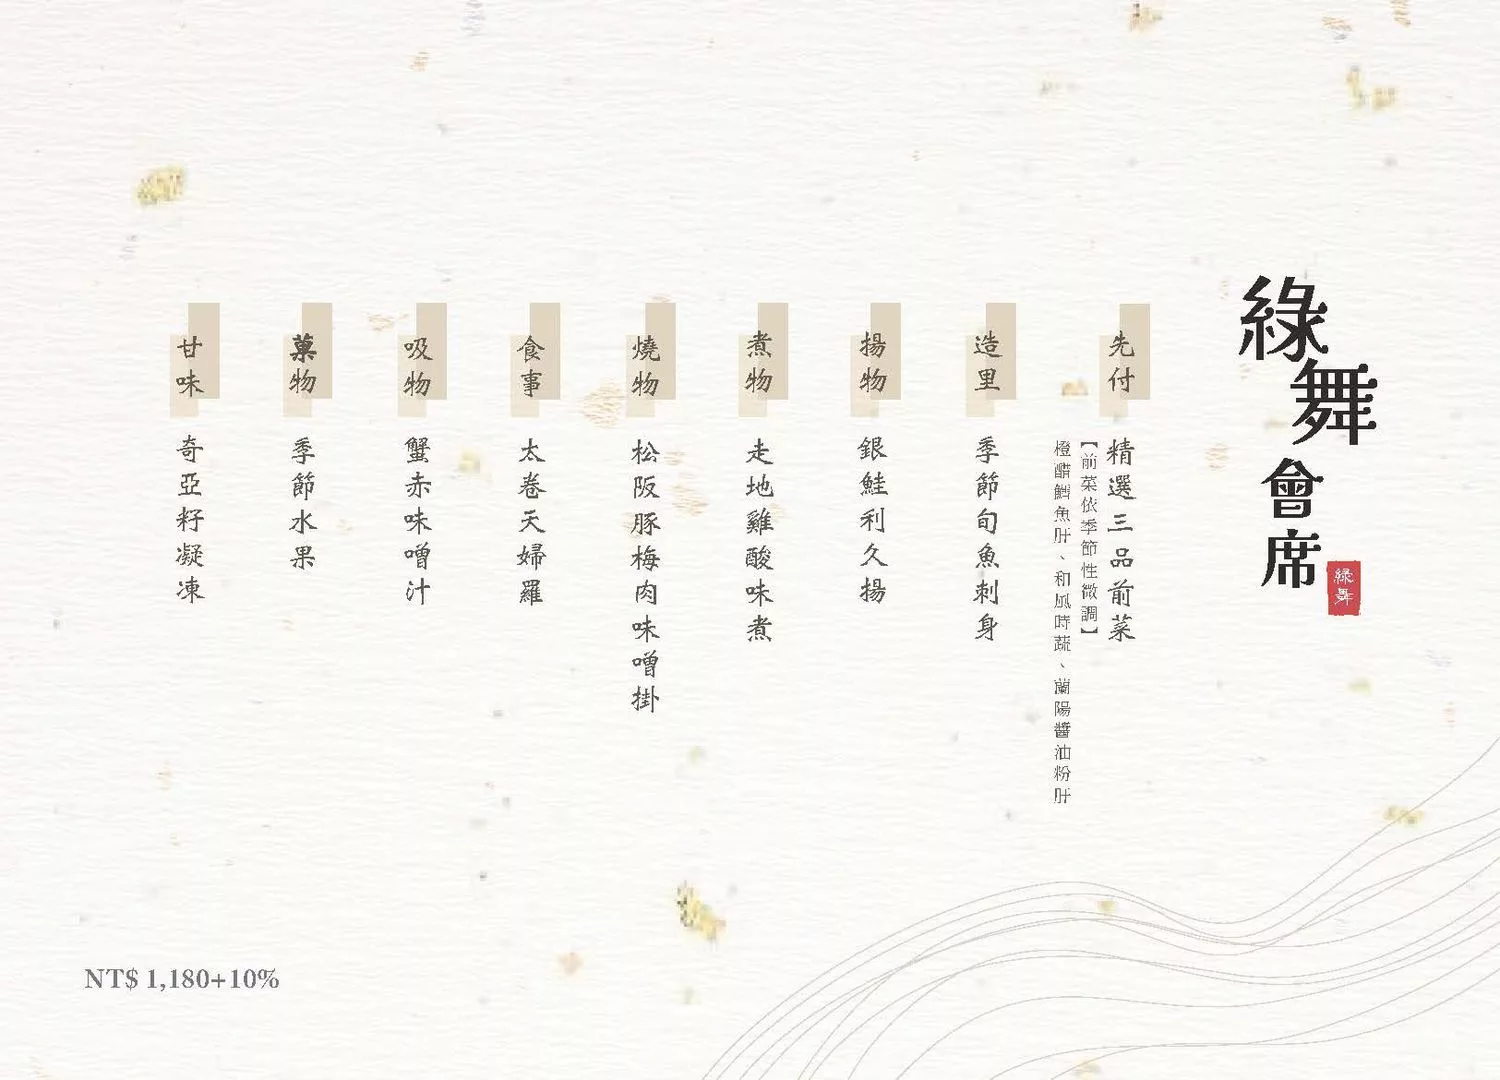 綠舞會席
綠舞
先付
精選三品前菜
【前菜依季節性微調】
橙醋鱈魚肝、和風時蔬、蘭陽醬油粉肝
造里
季節旬魚刺身
揚物
銀鮭利久揚
煮物
走地雞酸味煮
燒物
松阪豚梅肉味噌掛
食事
太卷天婦羅
吸物
蟹赤味噌汁
菓物
季節水果
甘味
奇亞籽凝凍
NT$ 1,180+10%